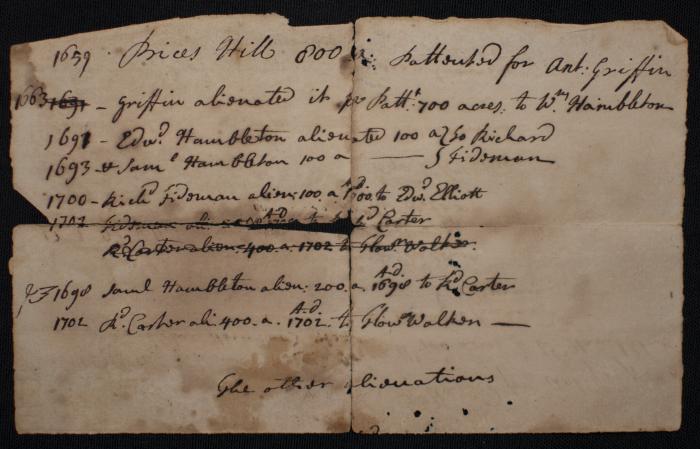 1659 · Prices Hill 800 a: Pattented for Ant: Griffin
1663 1691 - Griffin alienated it pr Patt.t 700 acres. to Wm Hambleton
1691 - Edw.d Hambleton alienated 100 a } to Richard
1693 & Sam.l Hambleton 100 a — } Fideman
1700 - Rich.d Fideman alien: 100. a. 1700. to Edw.d Elliott
1702 Fideman ali. A.D to R.d Carter
R.d Carter alien: 400. a. 1702 to Flow.r Walker.
1698 Saml Hambleton alien: 200. a. A.D. 1698 to R.d Carter
1702 R.d Carter ali. 400. a. A.D 1702. to Flow.r Walker —
The other alienations